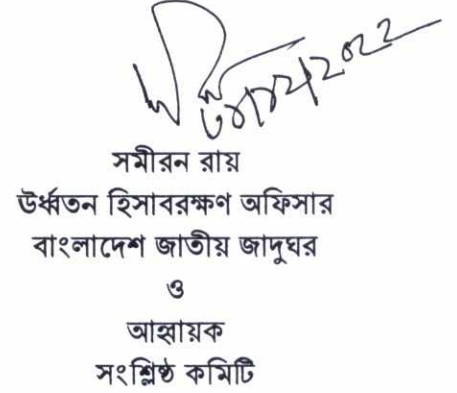 ৩০/১২/২০২২
সমীরন রায়
উর্ধ্বতন হিসাবরক্ষণ অফিসার
বাংলাদেশ জাতীয় জাদুঘর
ও
আহ্বায়ক
সংশ্লিষ্ঠ কমিটি